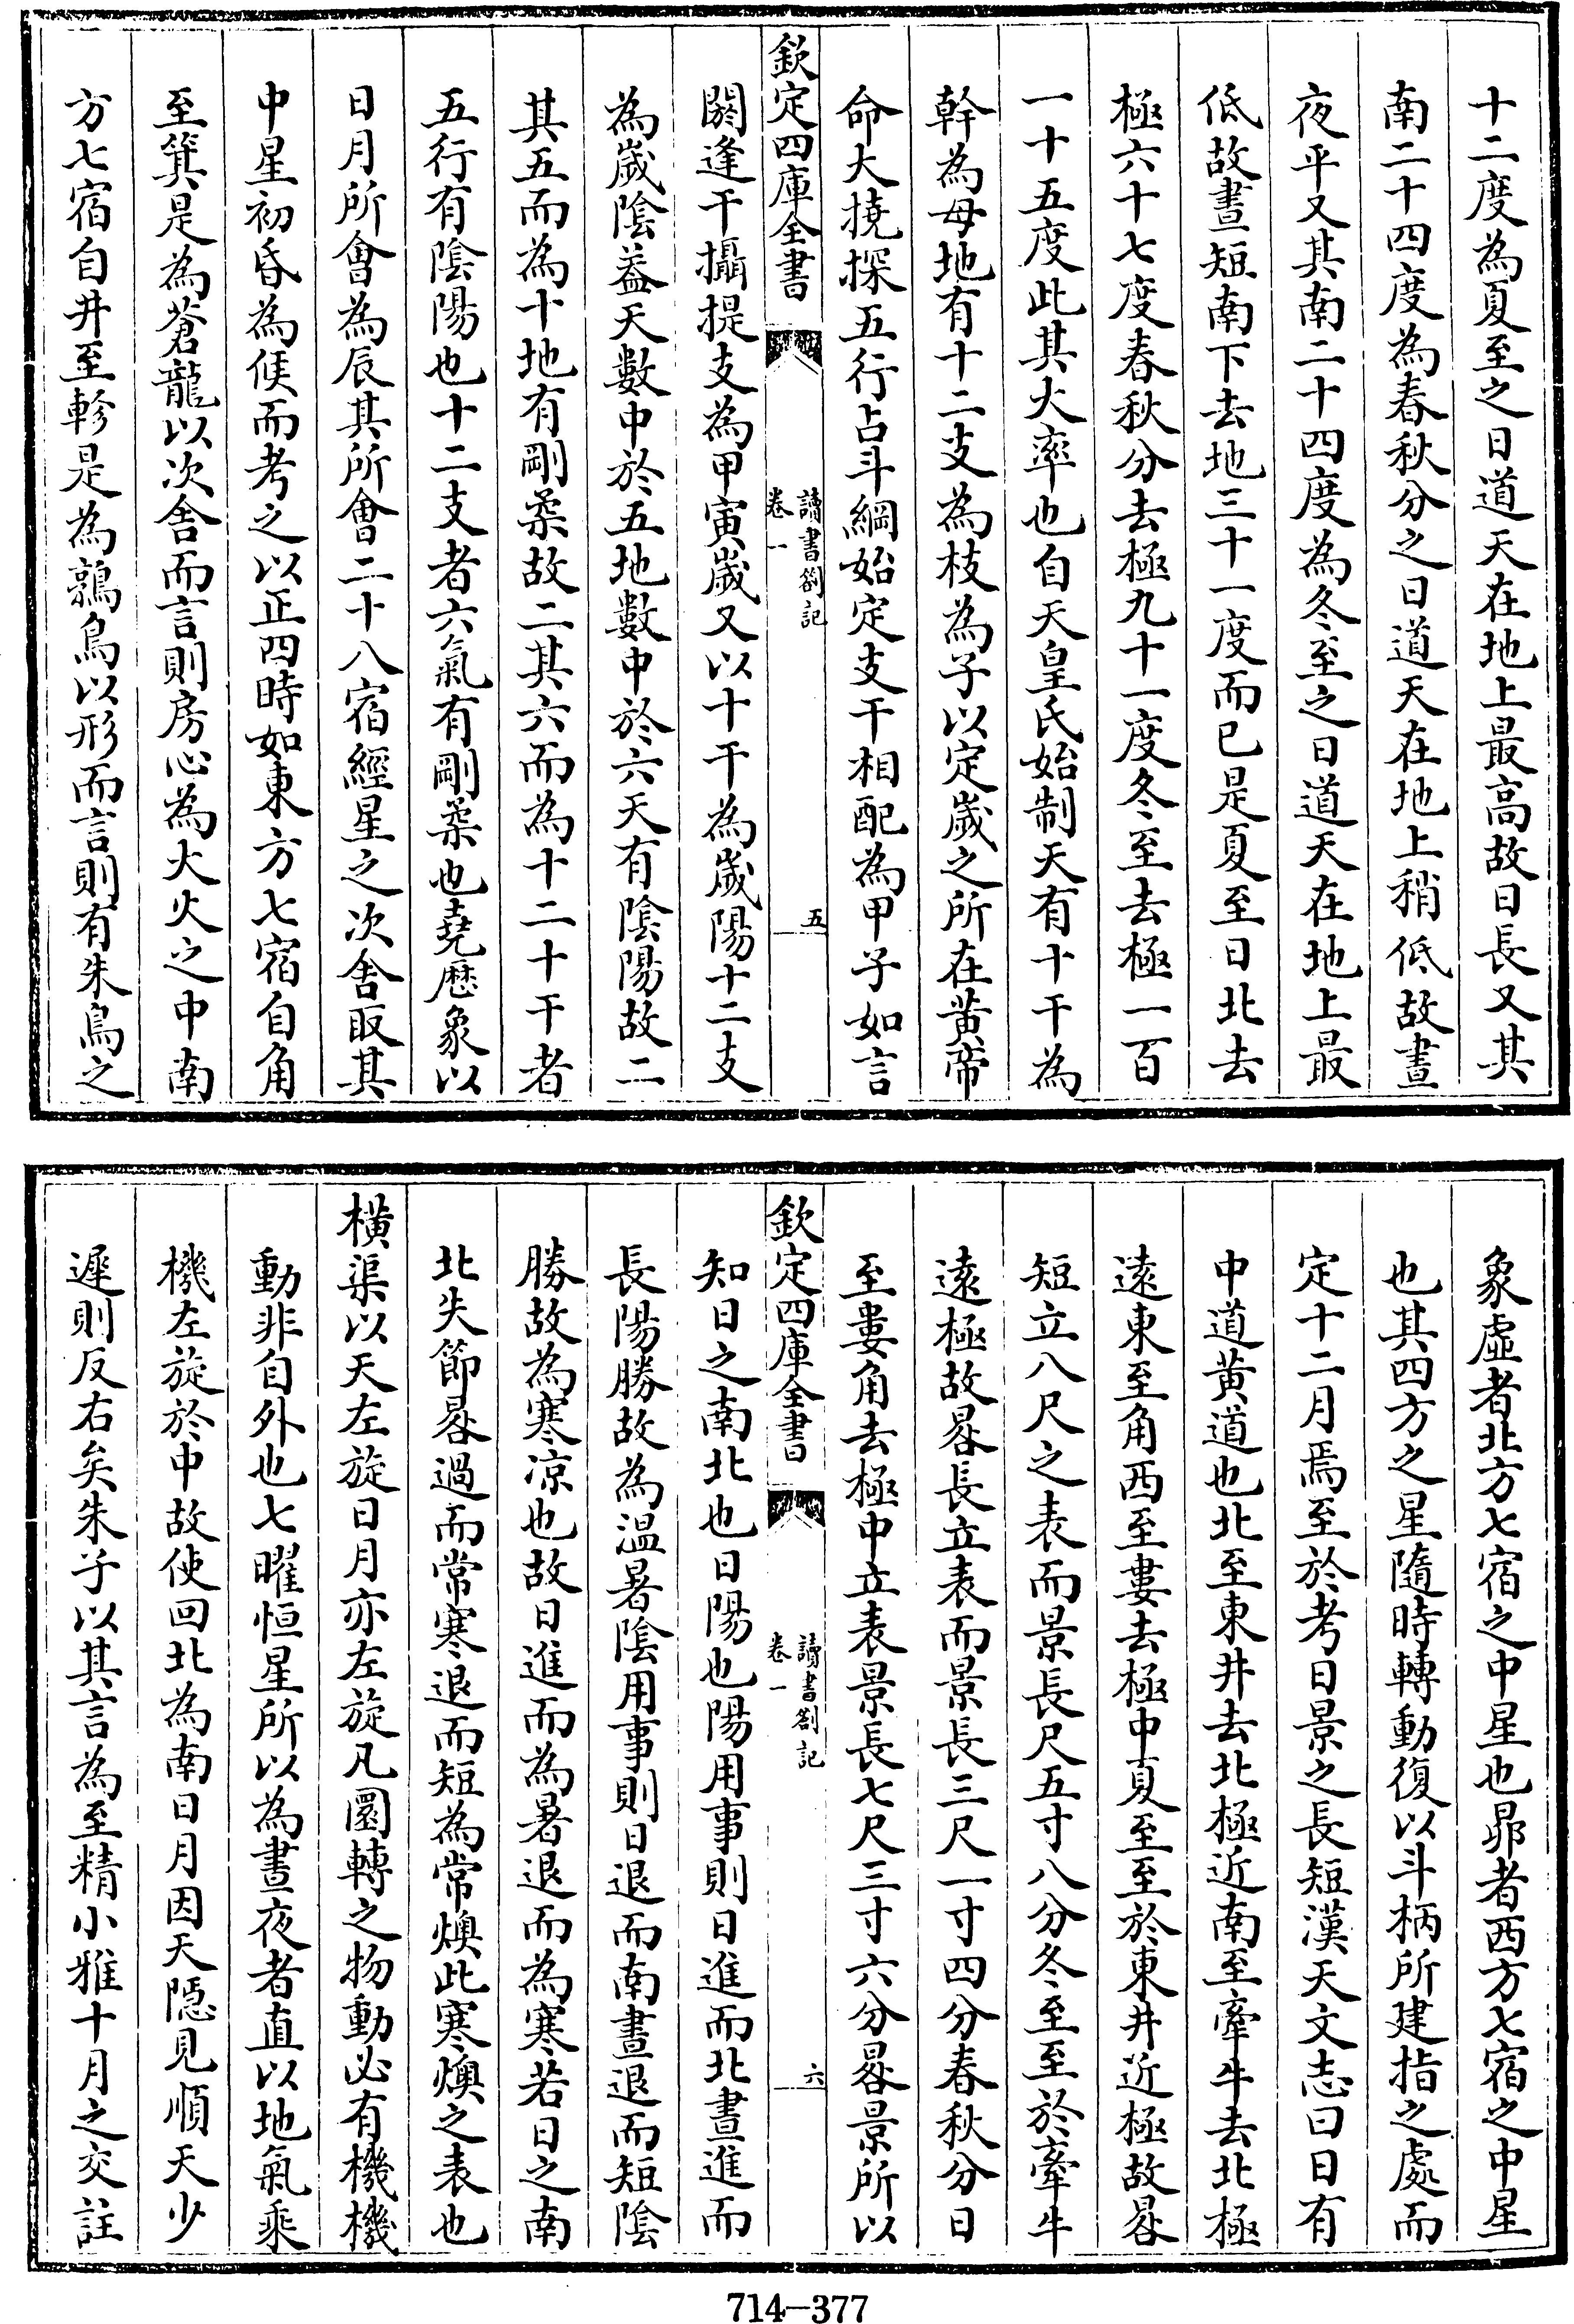 十二度為夏至之日道天在地上最高故日長又其
南二十四度為春秋分之日道天在地上稍低故晝
夜平又其南二十四度為冬至之日道天在地上最
低故晝短南下去地三十一度而已是夏至日北去
極六十七度春秋分去極九十一度冬至去極一百
一十五度此其大率也自天皇氏始制天有十干為
幹為母地有十二支為枝為子以定歲之所在黄帝
命大撓探五行占斗綱始定支干相配為甲子如言
欽定四庫全書
讀書劄記
卷一
五
閼逢干攝提支為甲寅歲又以十干為歲陽十二支
為歲陰葢天數中於五地數中於六天有陰陽故二
其五而為十地有剛柔故二其六而為十二十干者
五行有陰陽也十二支者六氣有剛柔也堯厯象以
日月所會為辰其所會二十八宿經星之次舍取其
中星初昏為候而考之以正四時如東方七宿自角
至箕是為蒼龍以次舍而言則房心為大火之中南
方七宿自井至軫是為鶉鳥以形而言則有朱鳥之
象虛者北方七宿之中星也昴者西方七宿之中星
也其四方之星隨時轉動復以斗柄所建指之處而
定十二月焉至於考日景之長短漢天文志曰日有
中道黄道也北至東井去北極近南至牽牛去北極
遠東至角西至婁去極中夏至至於東井近極故晷
短立八尺之表而景長尺五寸八分冬至至於牽牛
遠極故晷長立表而景長三尺一寸四分春秋分日
至婁角去極中立表景長七尺三寸六分晷景所以
欽定四庫全書
讀書劄記
卷一
六
知日之南北也日陽也陽用事則日進而北晝進而
長陽勝故為温暑陰用事則日退而南晝退而短陰
勝故為寒凉也故日進而為暑退而為寒若日之南
北失節晷過而常寒退而短為常燠此寒燠之表也
横渠以天左旋日月亦左旋凡圜轉之物動必有機機
動非自外也七曜恒星所以為晝夜者直以地氣乘
機左旋於中故使回北為南日月因天隱見順天少
遲則反右矣朱子以其言為至精小雅十月之交註
714-377